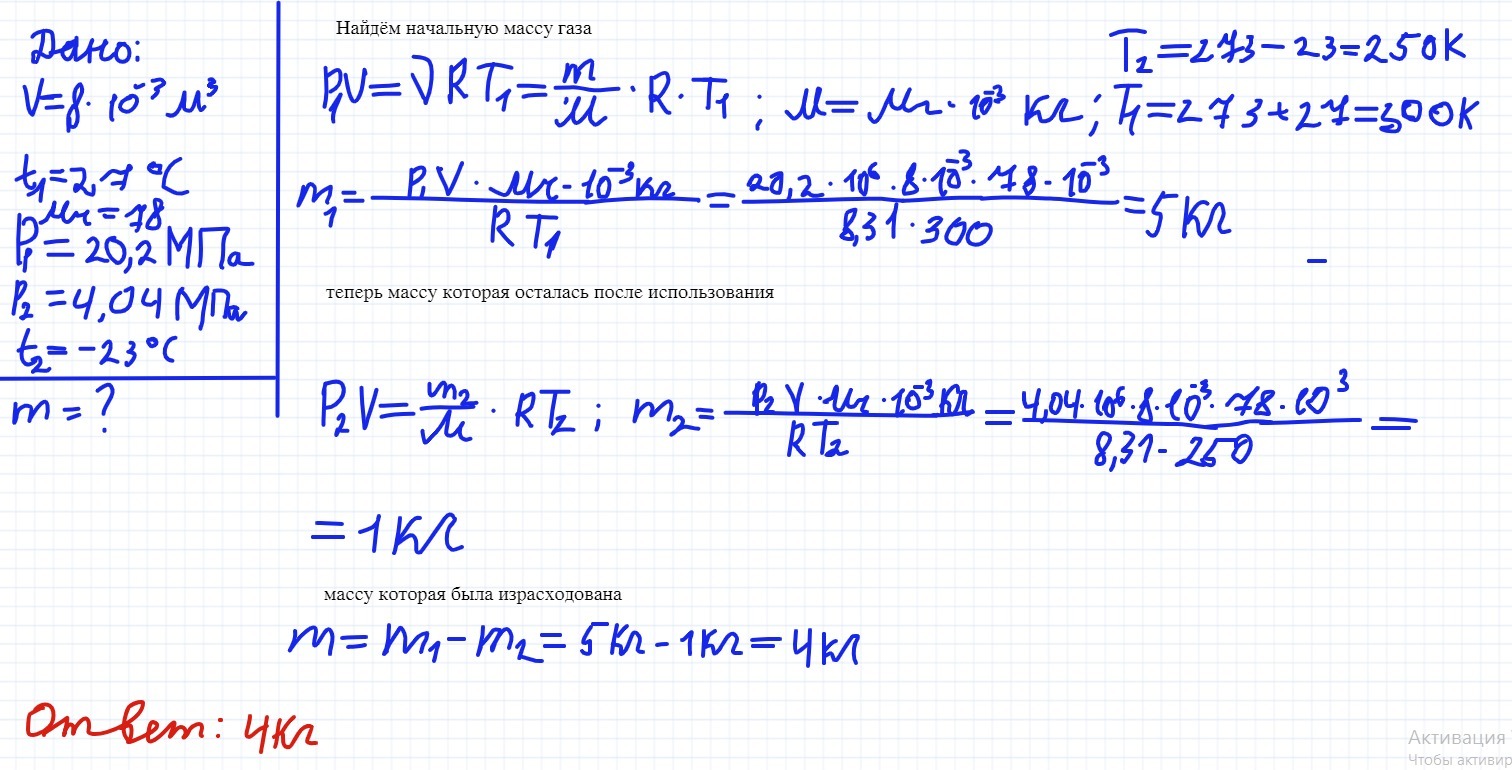 Дано:
V=8·10⁻³ м³
t₁=2,7 °C
Mr=78
P₁=20,2 МПа
P₂=4,04 МПа
t₂=-23 °C
m=?
Найдём начальную массу газа
P₁V=νRT₁=m/M·R·T₁; M=Mr·10⁻³ кг; T₁=273+27=300К
T₂=273-23=250К
m₁=P₁V·Mr·10⁻³кг/RT₁=20,2·10⁶·8·10⁻³·78·10⁻³/8,31·300=5 кг
теперь массу которая осталась после использования
P₂V=m₂/M·RT₂; m₂=P₂V·Mr·10⁻³кг/RT₂=4,04·10⁶·8·10⁻³·78·10³/8,31-250=
=1кг
массу которая была израсходована
m=m₁-m₂=5кг-1кг=4кг
Ответ: 4кг
Активация
Чтобы активир